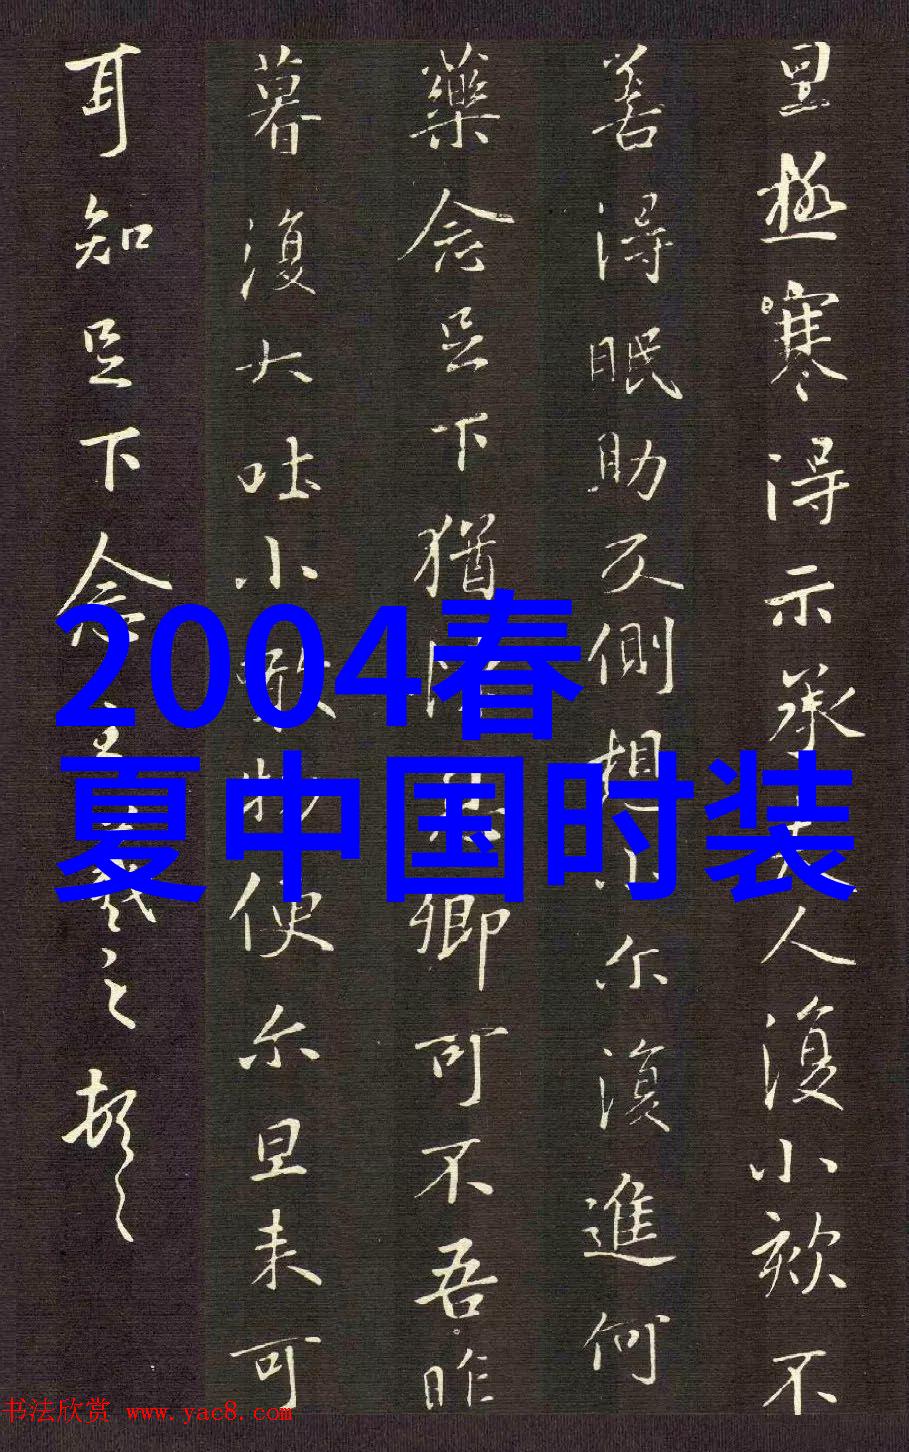 里極寒得示承人復小欬不
善得眠助反側想小尔復進何
藥念足下猶卿可不吾昨
暮復大吐小噉物便尔旦来可
耳知足下念王羲之頓首
2004春
夏中国时装
书法欣赏 www.yac8.com